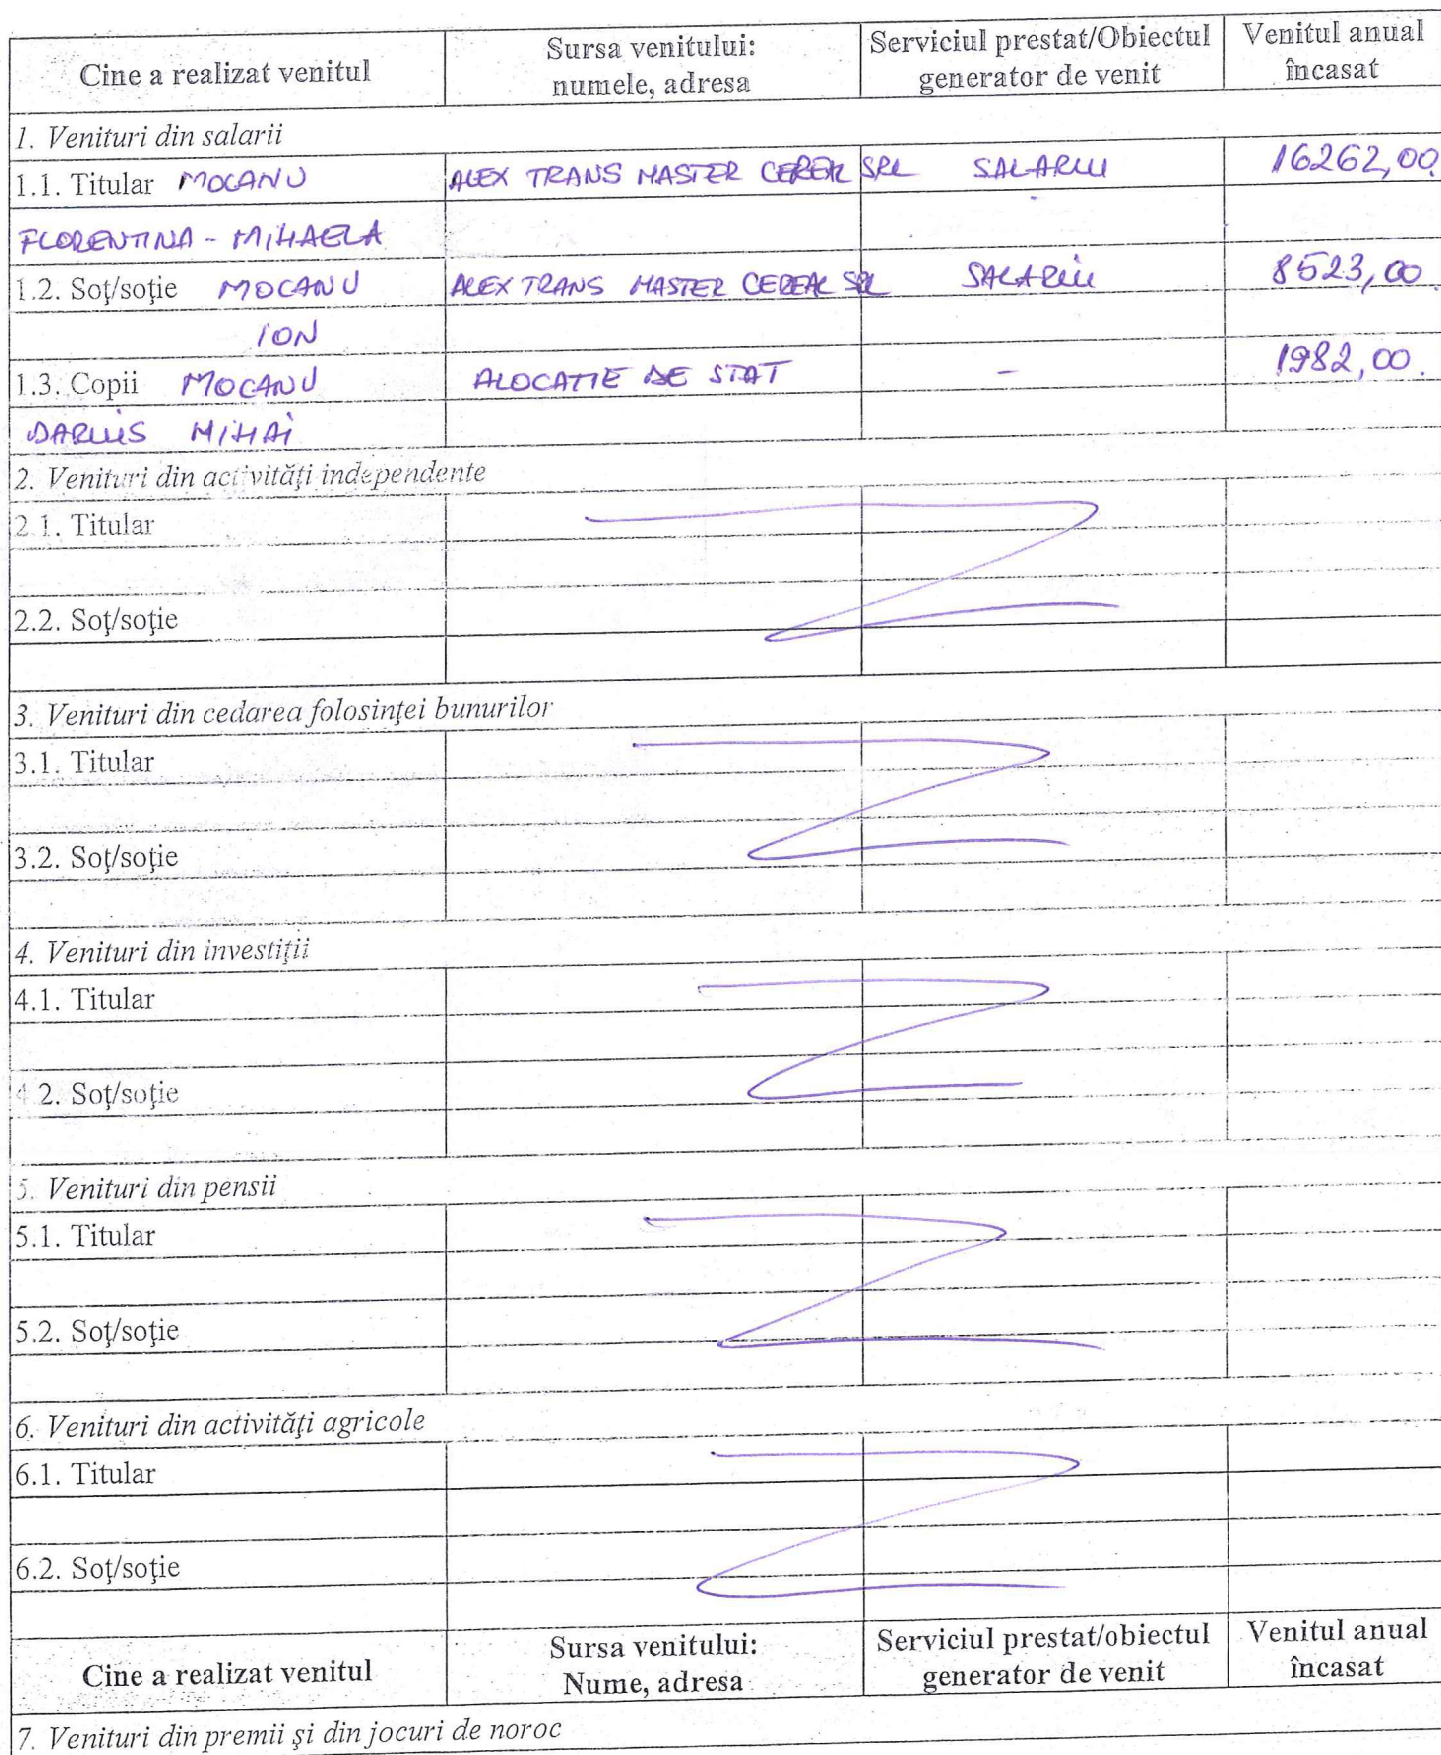 Cine a realizat venitul
Sursa venitului:
numele, adresa
Serviciul prestat/Obiectul
generator de venit
Venitul anual
încasat
1. Venituri din salarii
1.1. Titular MOCANU ALEX TRANS MASTER CEREAL SRL SALARIU 16262,00
FLORENTINA - MIHAELA
1.2. Soţ/soţie MOCANU ALEX TRANS MASTER CEREAL SRL SALARIU 8523,00
ION
1.3. Copii MOCANU ALOCATIE DE STAT - 1982,00.
DARIUS MIHAI
2. Venituri din activităţi independente
2.1. Titular
2.2. Soţ/soţie
3. Venituri din cedarea folosinţei bunurilor
3.1. Titular
3.2. Soţ/soţie
4. Venituri din investiţii
4.1. Titular
4.2. Soţ/soţie
5. Venituri din pensii
5.1. Titular
5.2. Soţ/soţie
6. Venituri din activităţi agricole
6.1. Titular
6.2. Soţ/soţie
Cine a realizat venitul
Sursa venitului:
Nume, adresa
Serviciul prestat/obiectul
generator de venit
Venitul anual
încasat
7. Venituri din premii şi din jocuri de noroc